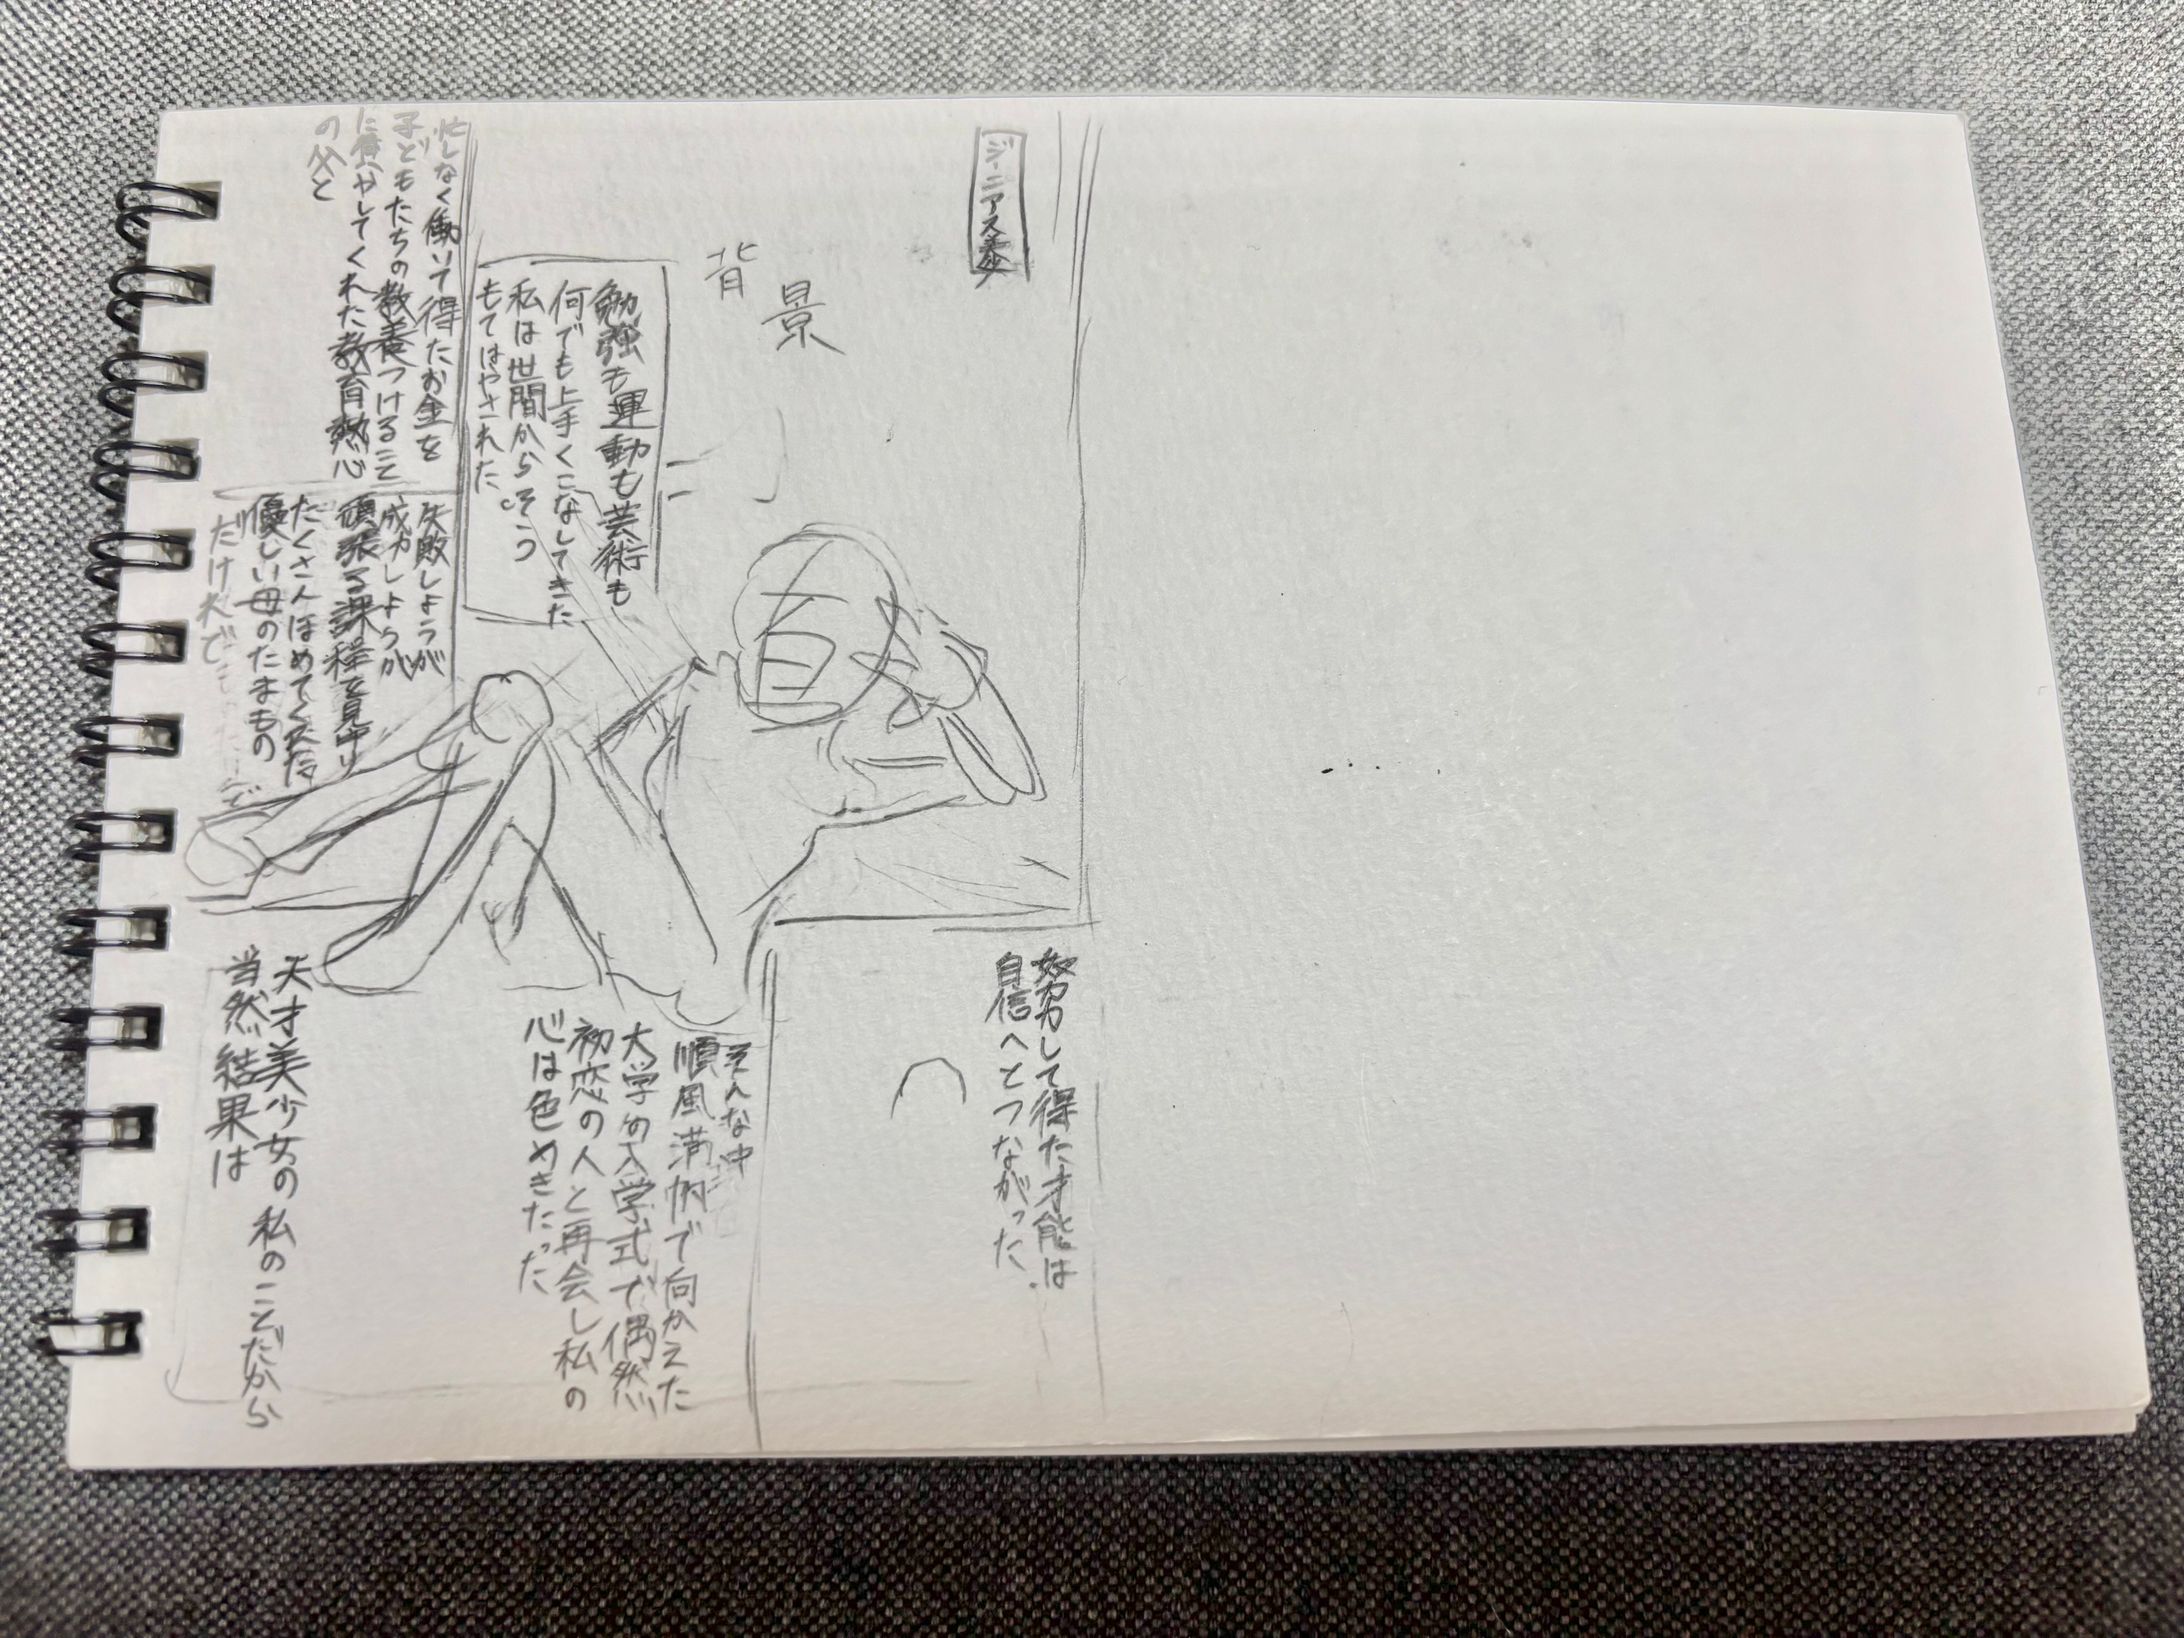 ジーニアス
背景
勉強も運動も芸術も
何でも上手くこなしてきた
私は世間からそう
もてはやされた。
忙しなく働いて得たお金を
子どもたちの教養つけること
に費やしてくれた教育熱心
の父と
失敗しようが
成功しようが
頑張る課程を見守り
たくさんほめてくれた
優しい母のたまもの
だけれど
努力して得た才能は
自信へとつながった.
そんな中
順風満帆で向かえた
大学の入学式で偶然
初恋の人と再会し私の
心は色めきたった
天才美少女の私のことだから
当然結果は